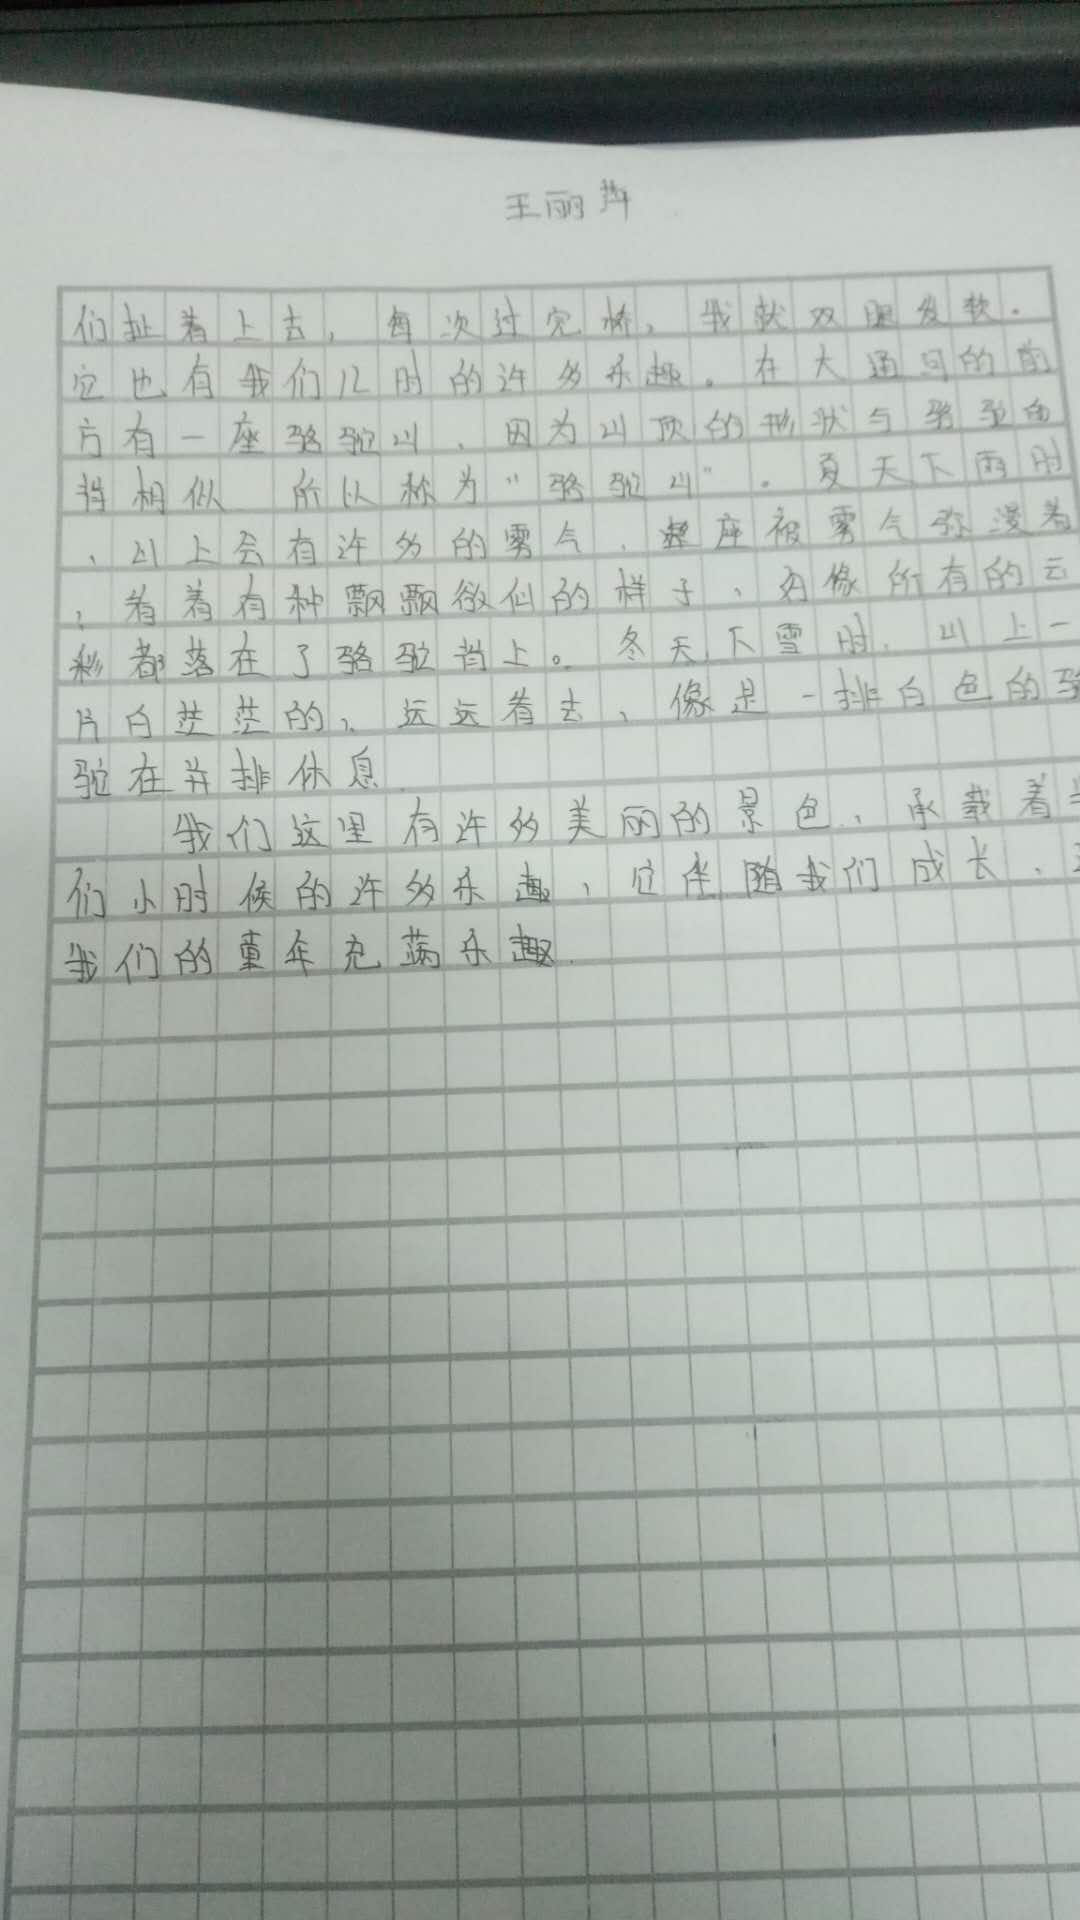 王丽萍
们扯着上去，每次过完桥，我就双腿发软。
它也有我们儿时的许多乐趣。在大通河的前
方有一座骆驼山，因为山顶的形状与骆驼的
背相似 所以称为“骆驼山”。夏天下雨时
，山上会有许多的雾气，整座被雾气弥漫着
，看着有种飘飘欲仙的样子，好像所有的云
彩都落在了骆驼背上。冬天下雪时，山上一
片白茫茫的，远远看去，像是一排白色的骆
驼在并排休息
我们这里有许多美丽的景色，承载着我
们小时候的许多乐趣，它伴随我们成长，
我们的童年充满乐趣.